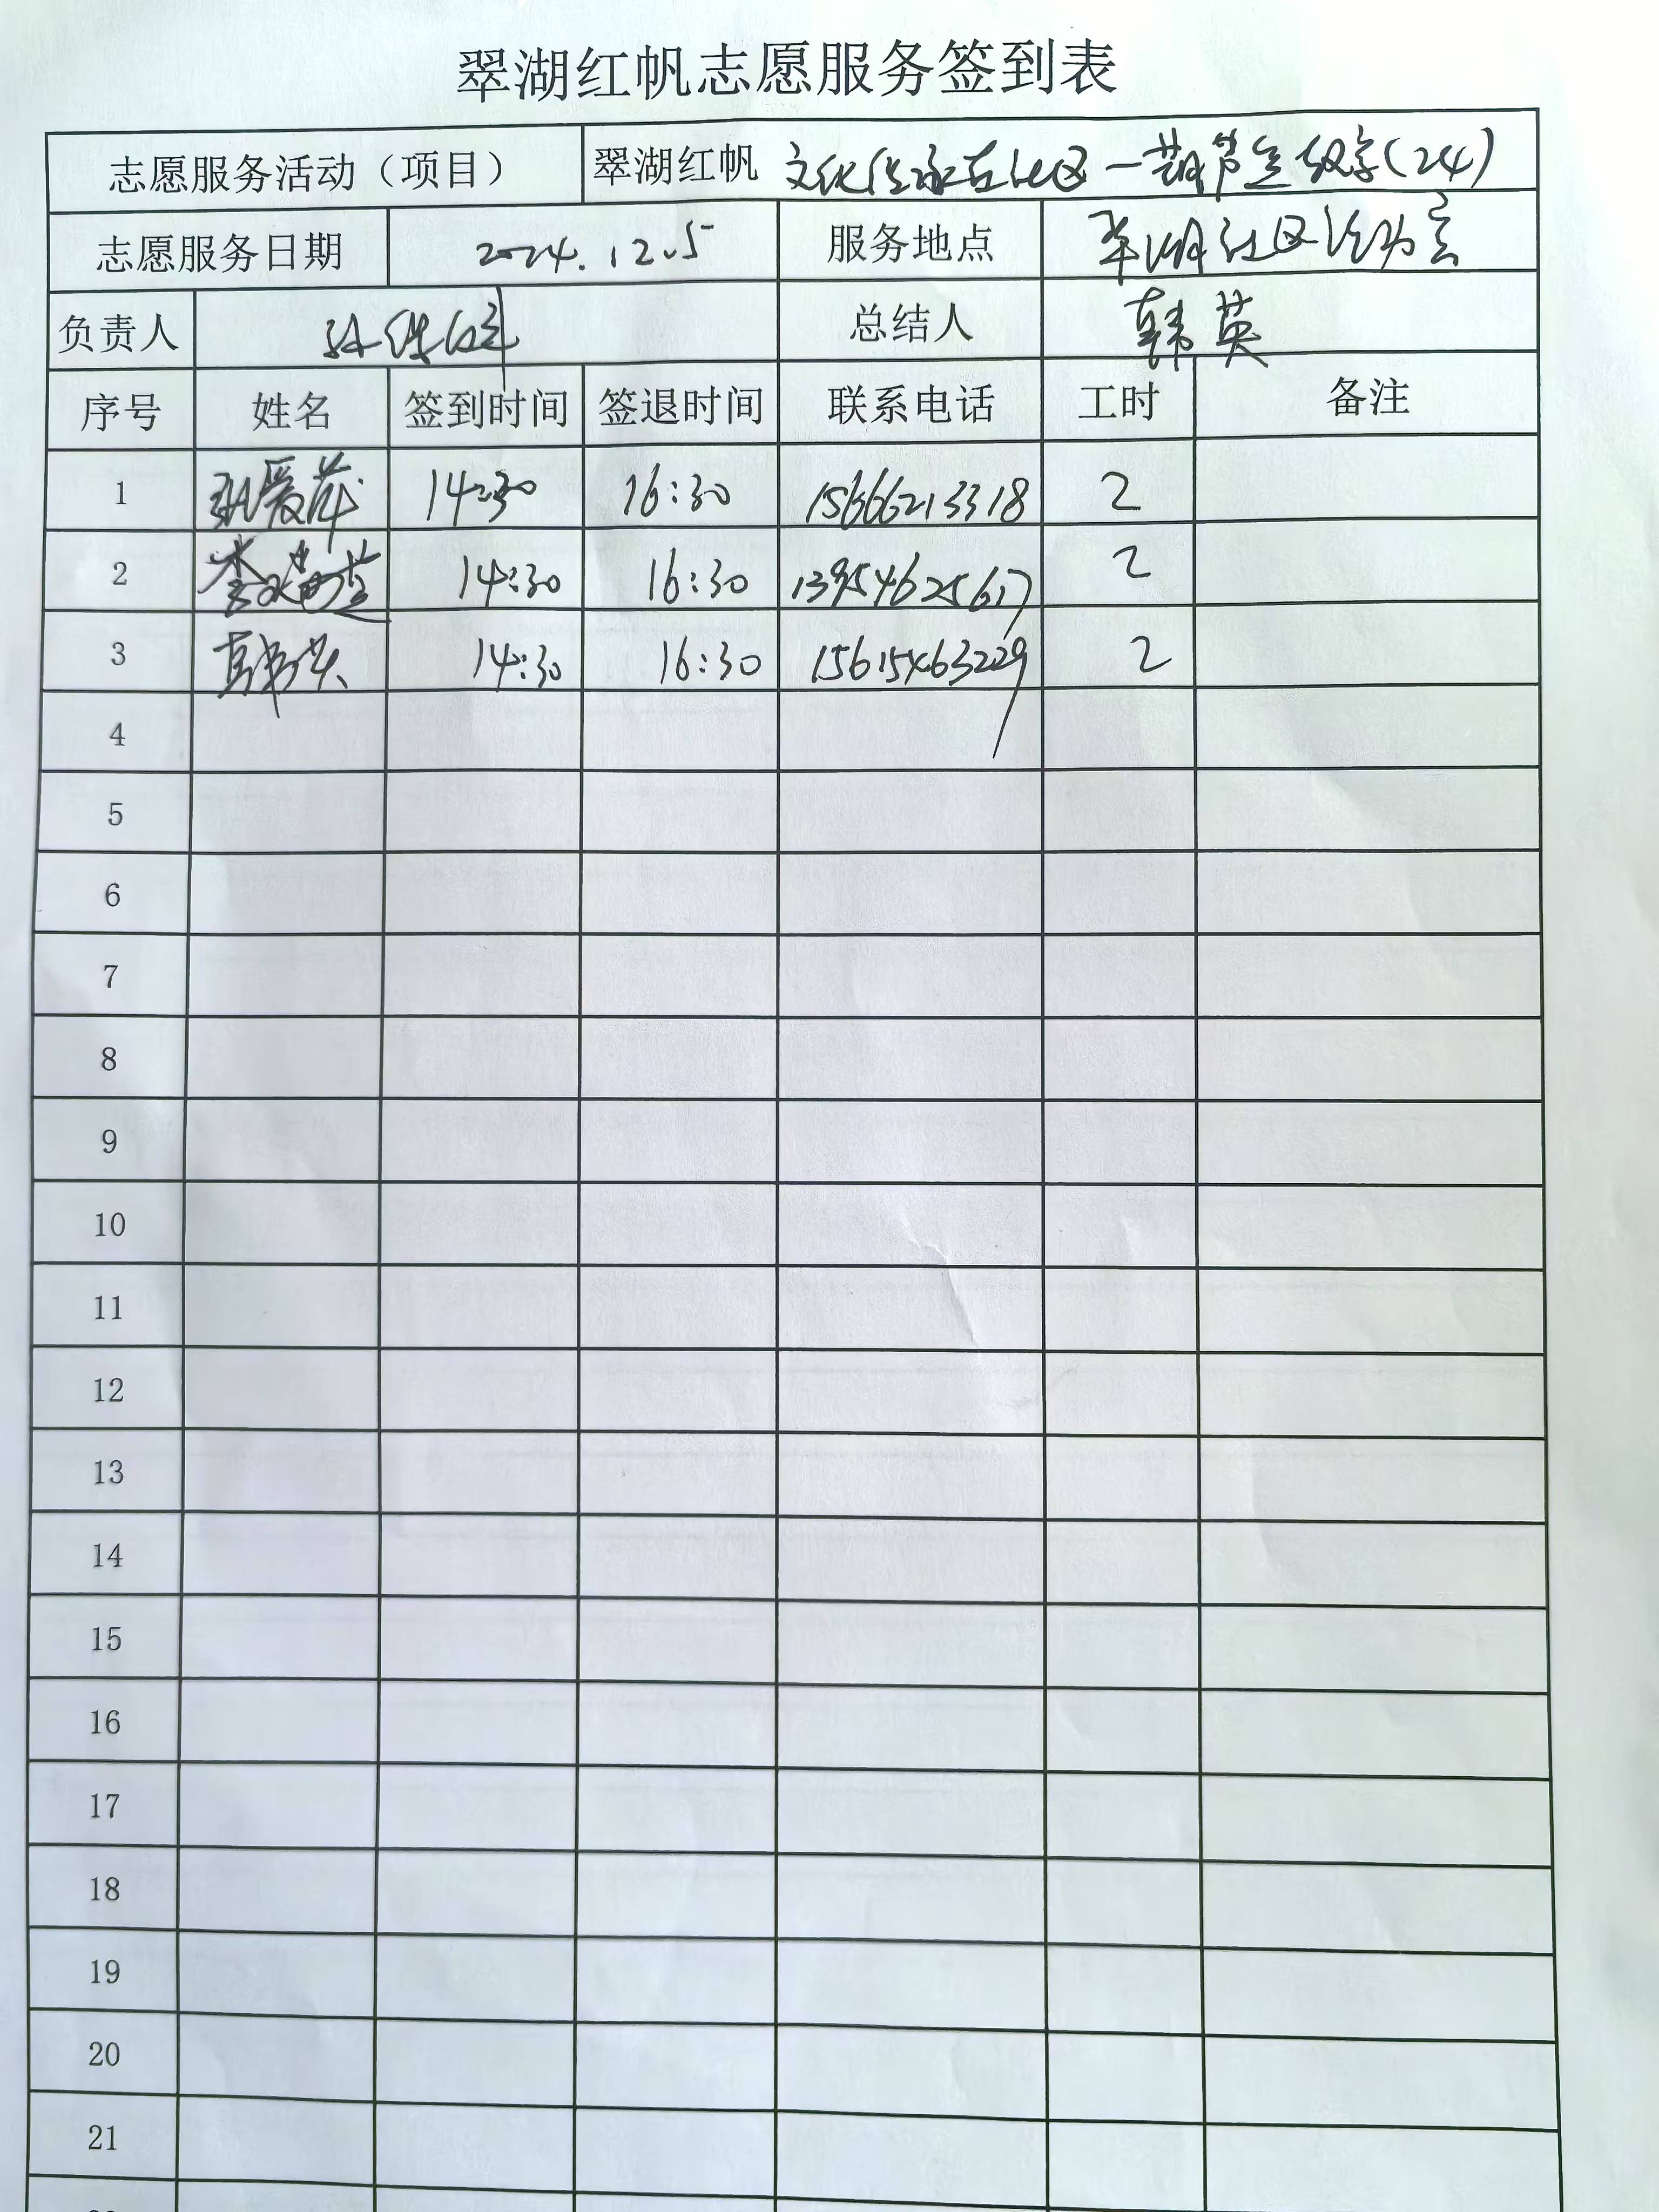 翠湖红帆志愿服务签到表
志愿服务活动（项目） 翠湖红帆 文化传承在社区一葫芦丝教学(24)
志愿服务日期 2024.12.5 服务地点 翠湖社区活动室
负责人 总结人 韩英
序号 姓名 签到时间 签退时间 联系电话 工时 备注
1 14:30 16:30 15666213318 2
2 14:30 16:30 13954625617 2
3 韩英 14:30 16:30 15615463229 2
4
5
6
7
8
9
10
11
12
13
14
15
16
17
18
19
20
21